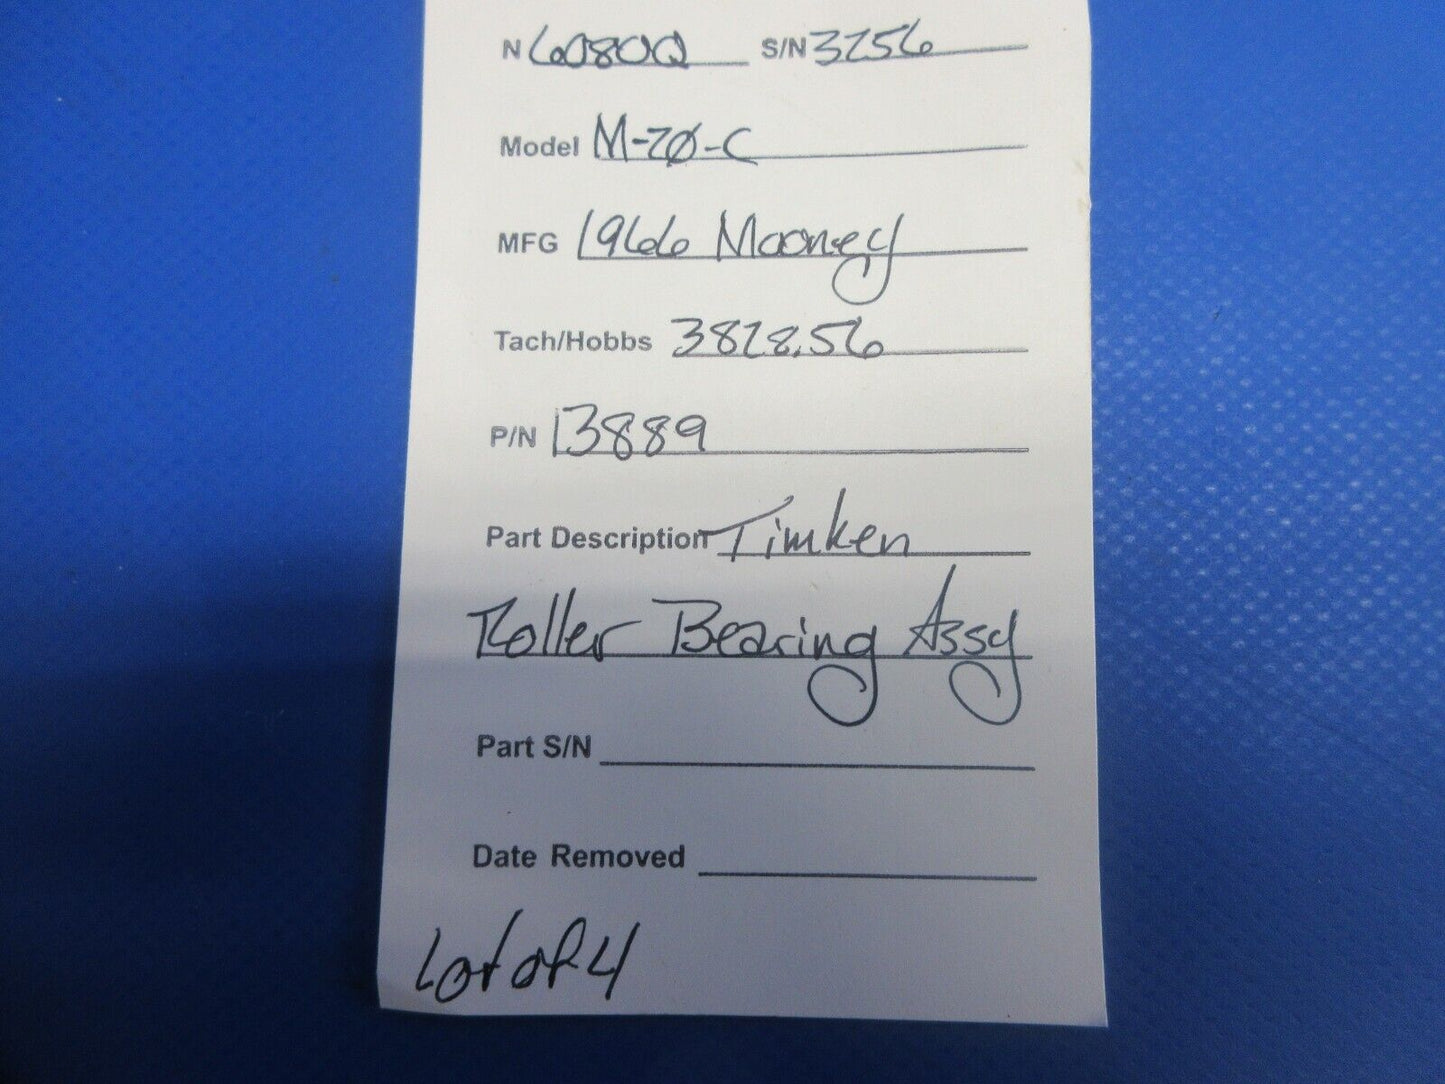 N 6080Q S/N 3256
Model M-20-C
MFG 1966 Mooney
Tach/Hobbs 3828.56
P/N 13889
Part Description Timken
Roller Bearing Assy
Part S/N
Date Removed
Lot of 4